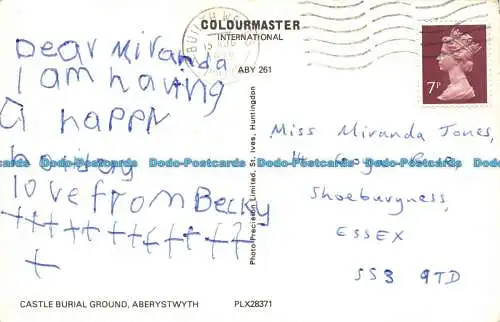 COLOURMASTER
INTERNATIONAL
ABY 261
Dear Miranda
I am having
a happy
love from Becky
+++++++++++++
+
Photo Precision Limited, St. Ives, Huntingdon
7P
Miss Miranda Jones,
Shoeburyness,
ESSEX
SS3 9TD
Dodo-Postcards Dodo-Postcards Dodo-Postcards Dodo-Postcards Dodo-Postcards
CASTLE BURIAL GROUND, ABERYSTWYTH
PLX28371